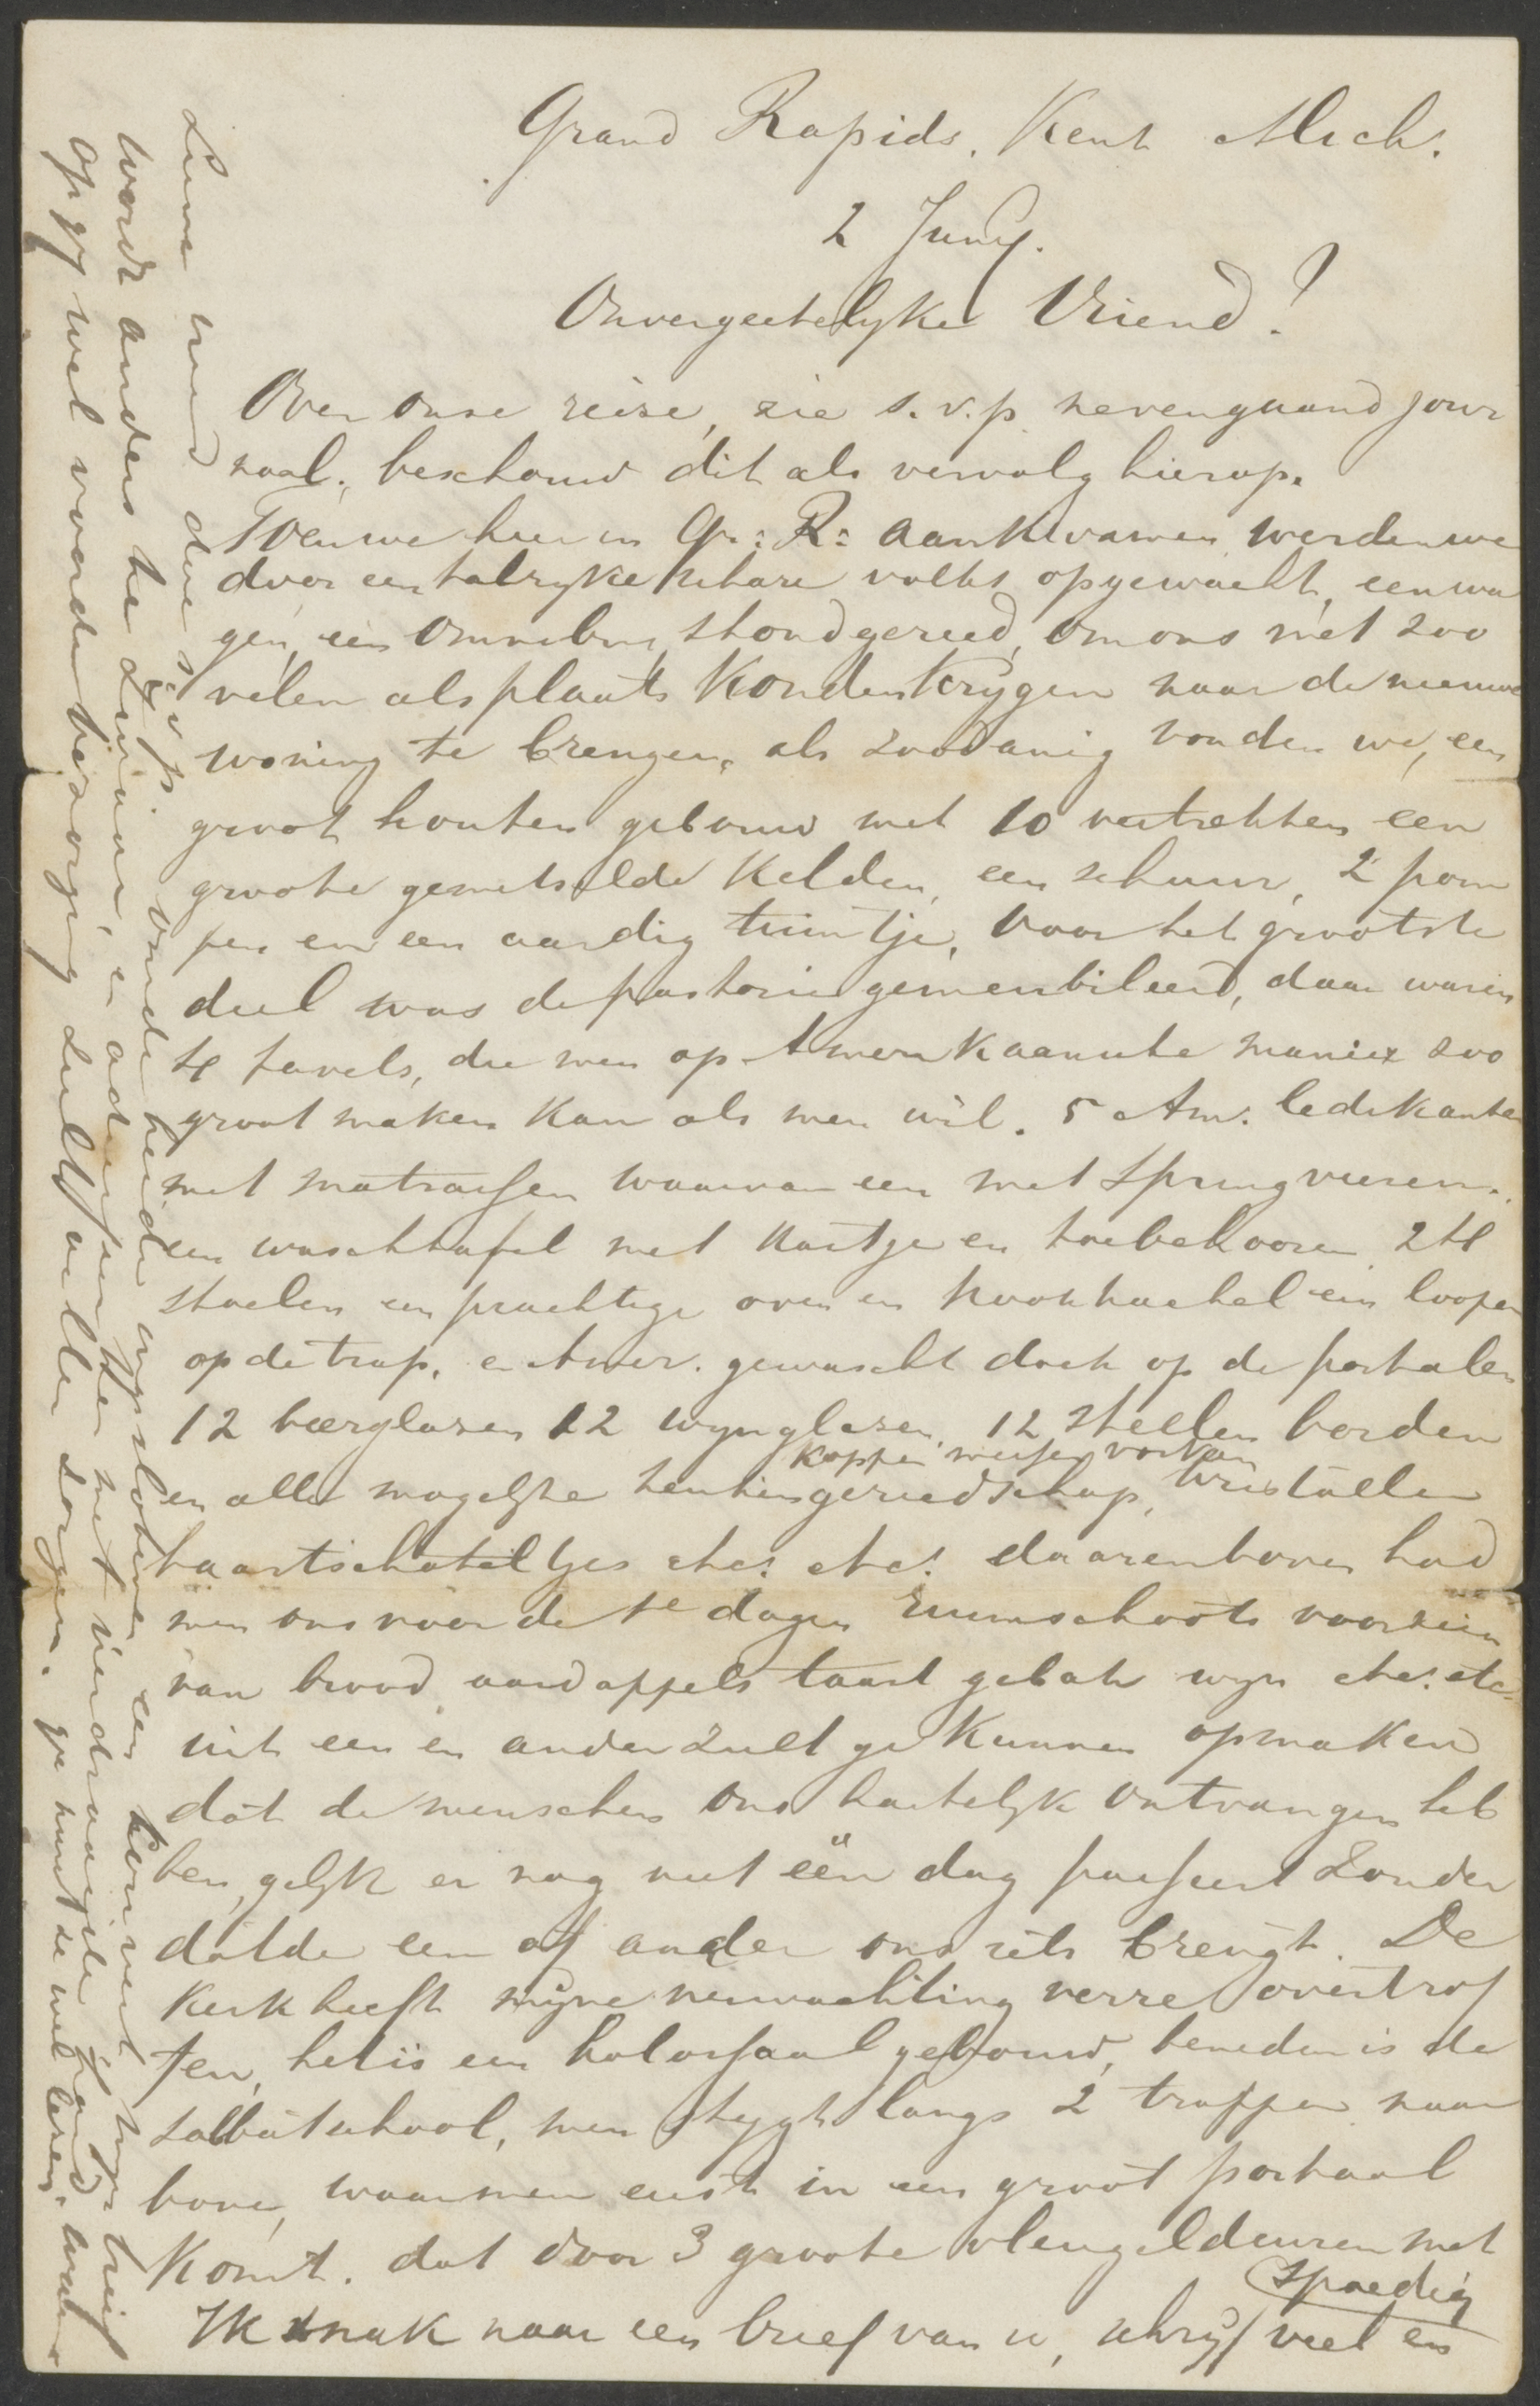 Grand Rapids. Kent Mich.
2 Juny.
Onvergeetelyke Vriend!
Over onse reize, zie s.v.p. nevengaand jour
naal; beschouw dit als vervolg hierop.
Toen we hier in Gr: R: aankwamen werden we
door een talryke schare volks opgewacht, een wa
gen, een Omnibus, stond gereed, om ons met zoo
velen als plaats konden krygen naar de nieuwe
woning te brengen, als zoodanig vonden we, een
groot houten gebouw met 10 vertrekken een
groote gemetselde kelder, een schuur, 2 pom
pen en een aardig tuintje, voor het grootste
deel was de pastorie gemeubileerd, daar waren
4 tavels, die men op Amerikaansche manier zoo
groot maken kan als men wil. 5 Am. ledekanten
met matrassen waarvan een met springveeren.
een waschtafel met kastje en toebehooren 24
stoelen een prachtige oven en kookkachel een looper
op de trap, en Amer. gewascht doek op de portalen
12 bierglazen 12 wynglazen, 12 stellen borden
koppen messen vorken
en alle mogelyke keukengereedschap, kristallen
taartschoteltjes etc. etc. daarenboven had
men ons voor de 1e dagen ruimschoots voorzien
van brood aardappels taart gebak wyn etc. etc.
uit een en ander zult ge kunnen opmaken
dat de menschen ons hartelyk ontvangen heb
ben, gelyk er nog niet één dag passeert zonder
dat de een of ander ons iets brengt. De
kerk heeft myne verwachting verre overtrof
fen, het is een kolossaal gebouw, beneden is de
sabbatschool, men stygt langs 2 trappen naar
boven, waar men eerst in een groot portaal
komt. dat door 3 groote vleugeldeuren met
spoedig
Ik snak naar een brief van u, schryf veel en
vriend doe s.v.p. beide ingesloten een
wordt anders te en met
op gy wel worden bezorging zult willen zorgen. ge kunt ze wel lezen.